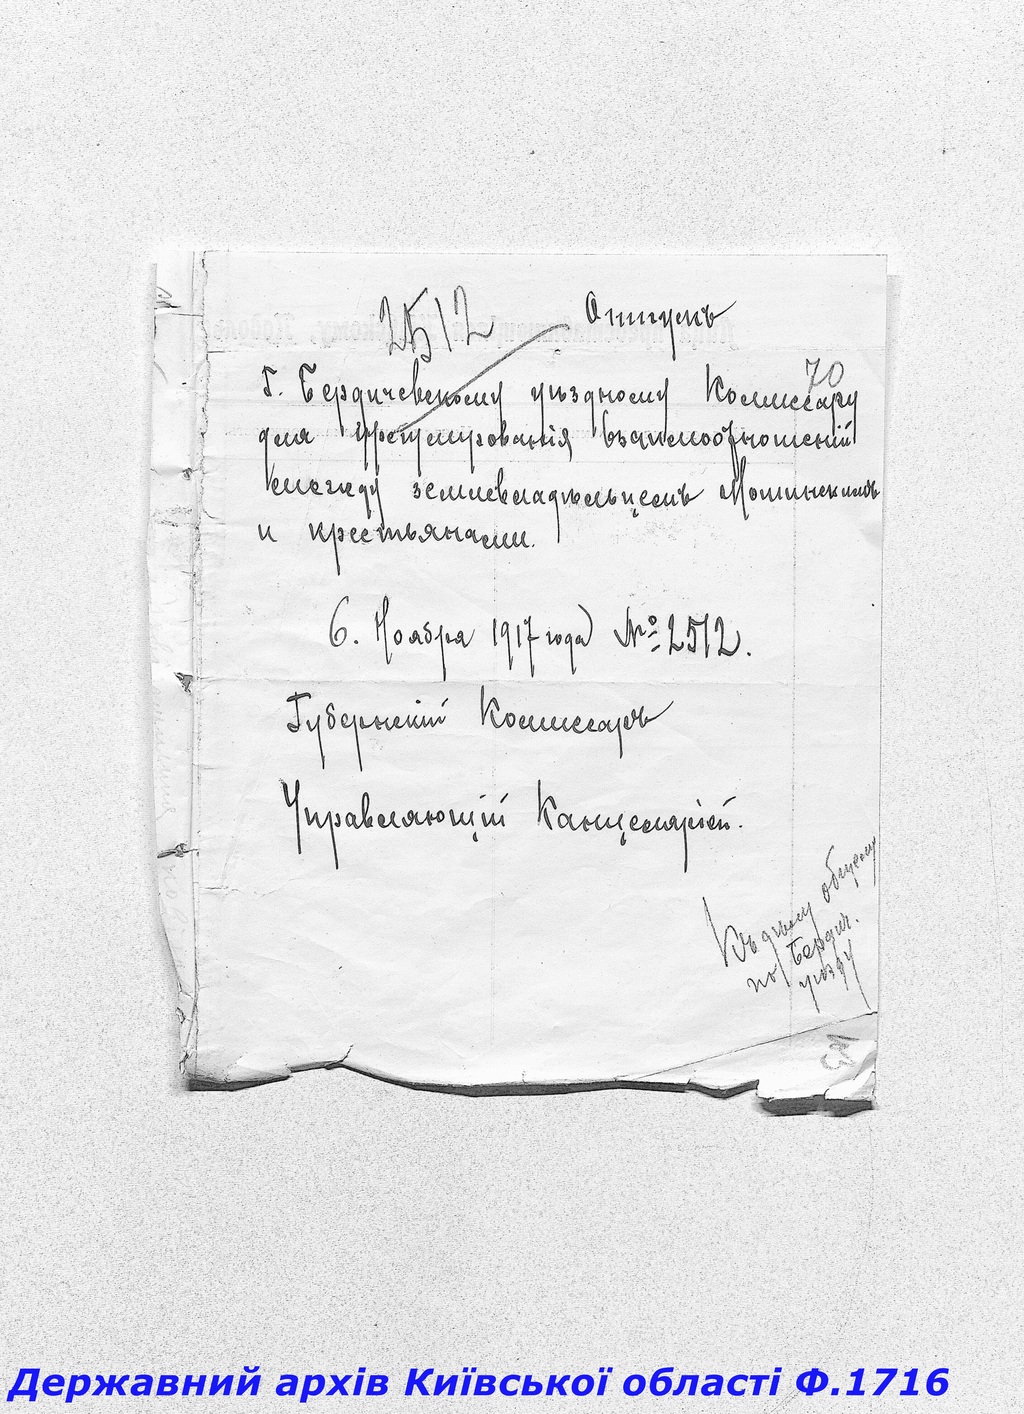 2512 Отпускъ
70
Г. Бердичевскому уѣздному Комиссару
для урегулированія взаимоотношеній
между землевладѣльцемъ Мошинскимъ
и крестьянами.
6. Ноября 1917 года № 2512.
Губернскій Комиссаръ
Управляющій Канцеляріей.
Къ дѣлу общему
по Бердич.
уѣзду
Державний архів Київської області Ф.1716